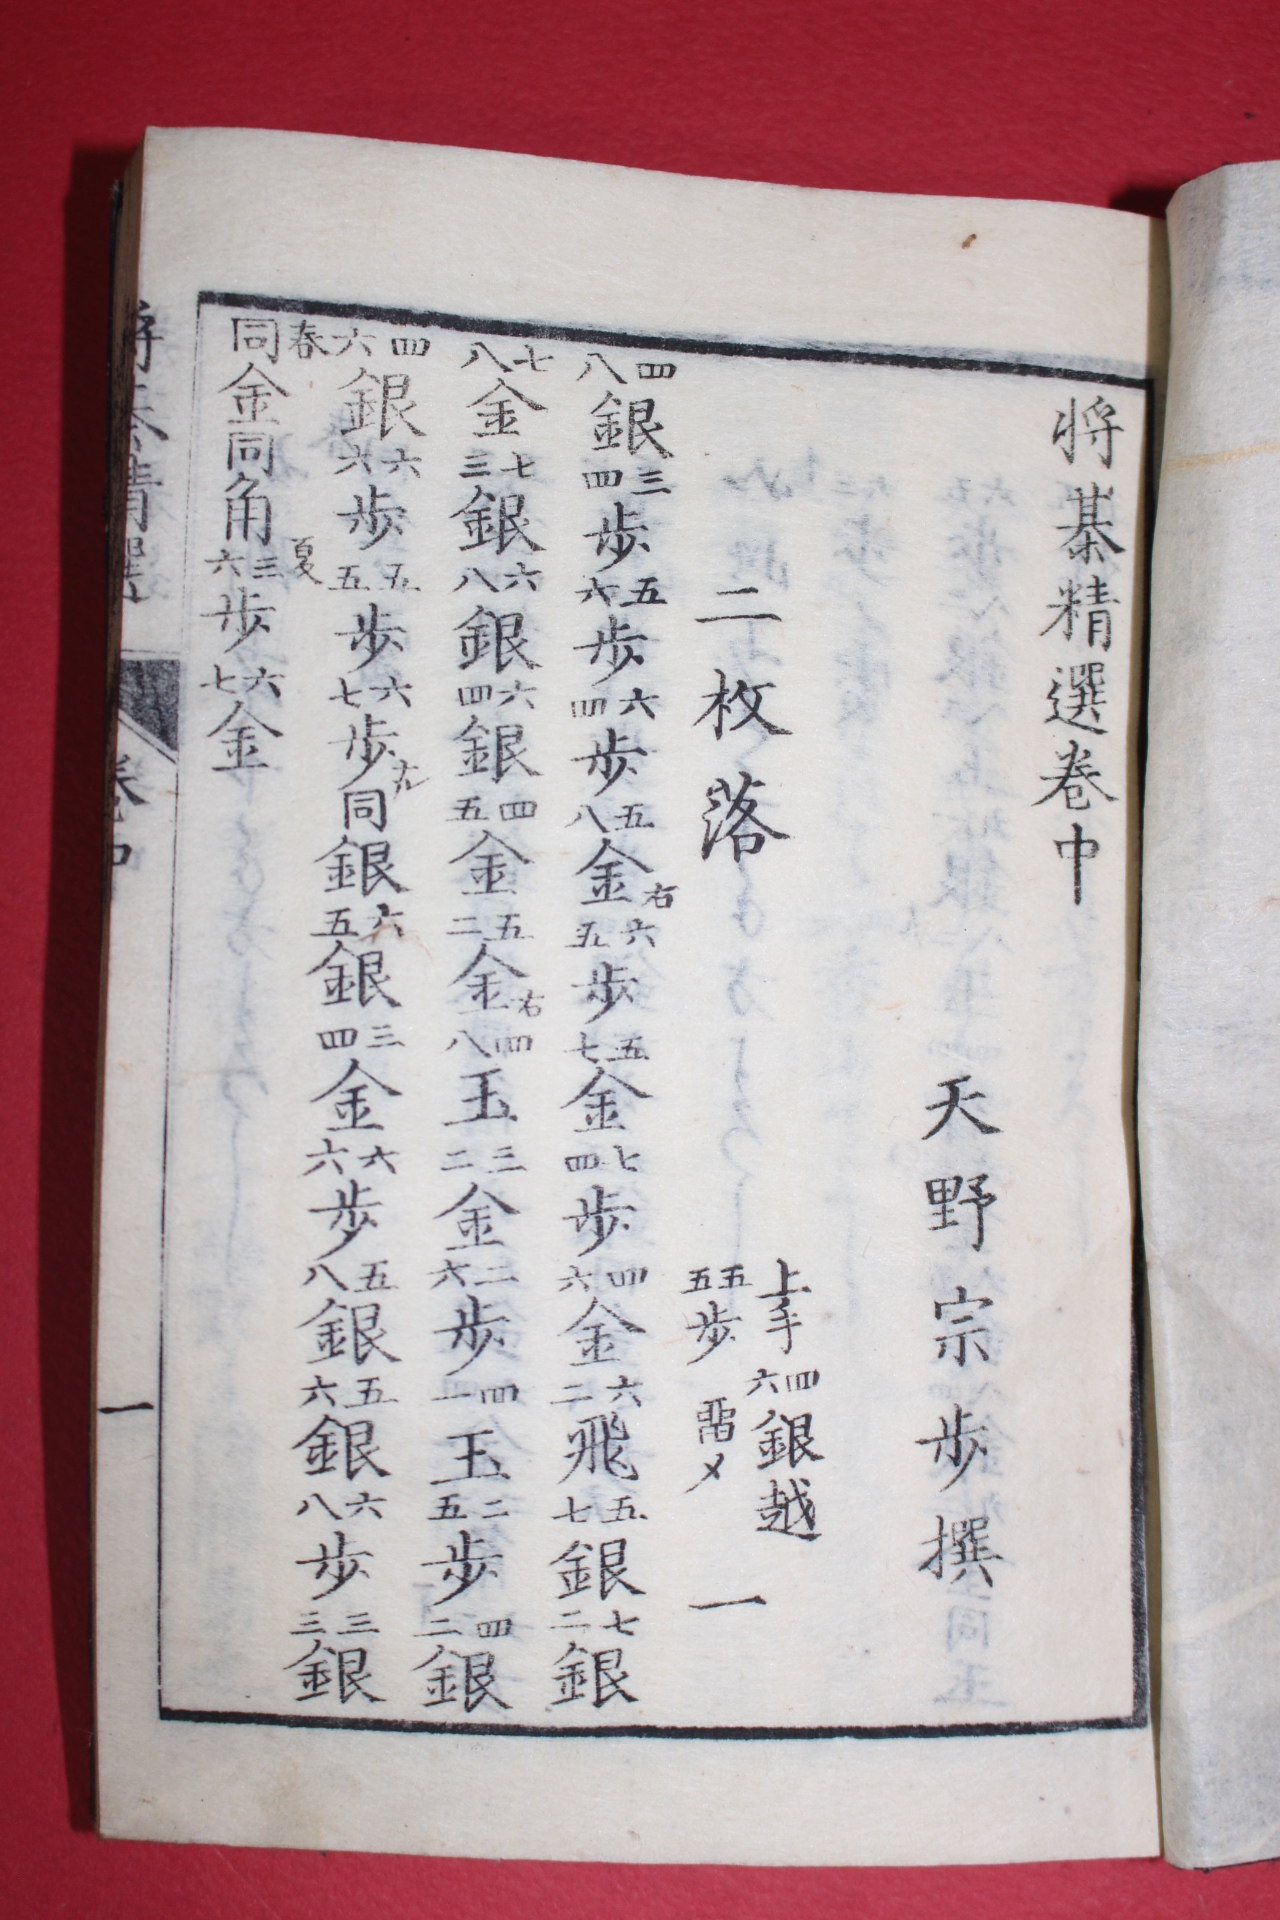 将棊精選巻中
天野宗歩撰
二枚落
上手 四六銀越
五五歩 〆 一
四八銀三四歩五六歩六四歩五八金右六五歩五七金七四歩四六金六二飛五七銀七二銀
七八金七三銀六八銀六四銀四五金五二金右四八玉三二金二六歩四一玉二五歩四二銀
四六銀六六歩五五歩六七歩ナル同銀六五銀三四金六六歩五八銀五六銀六八歩三三銀
春同金同角夏三六歩六七金
将棊精選 巻中 一